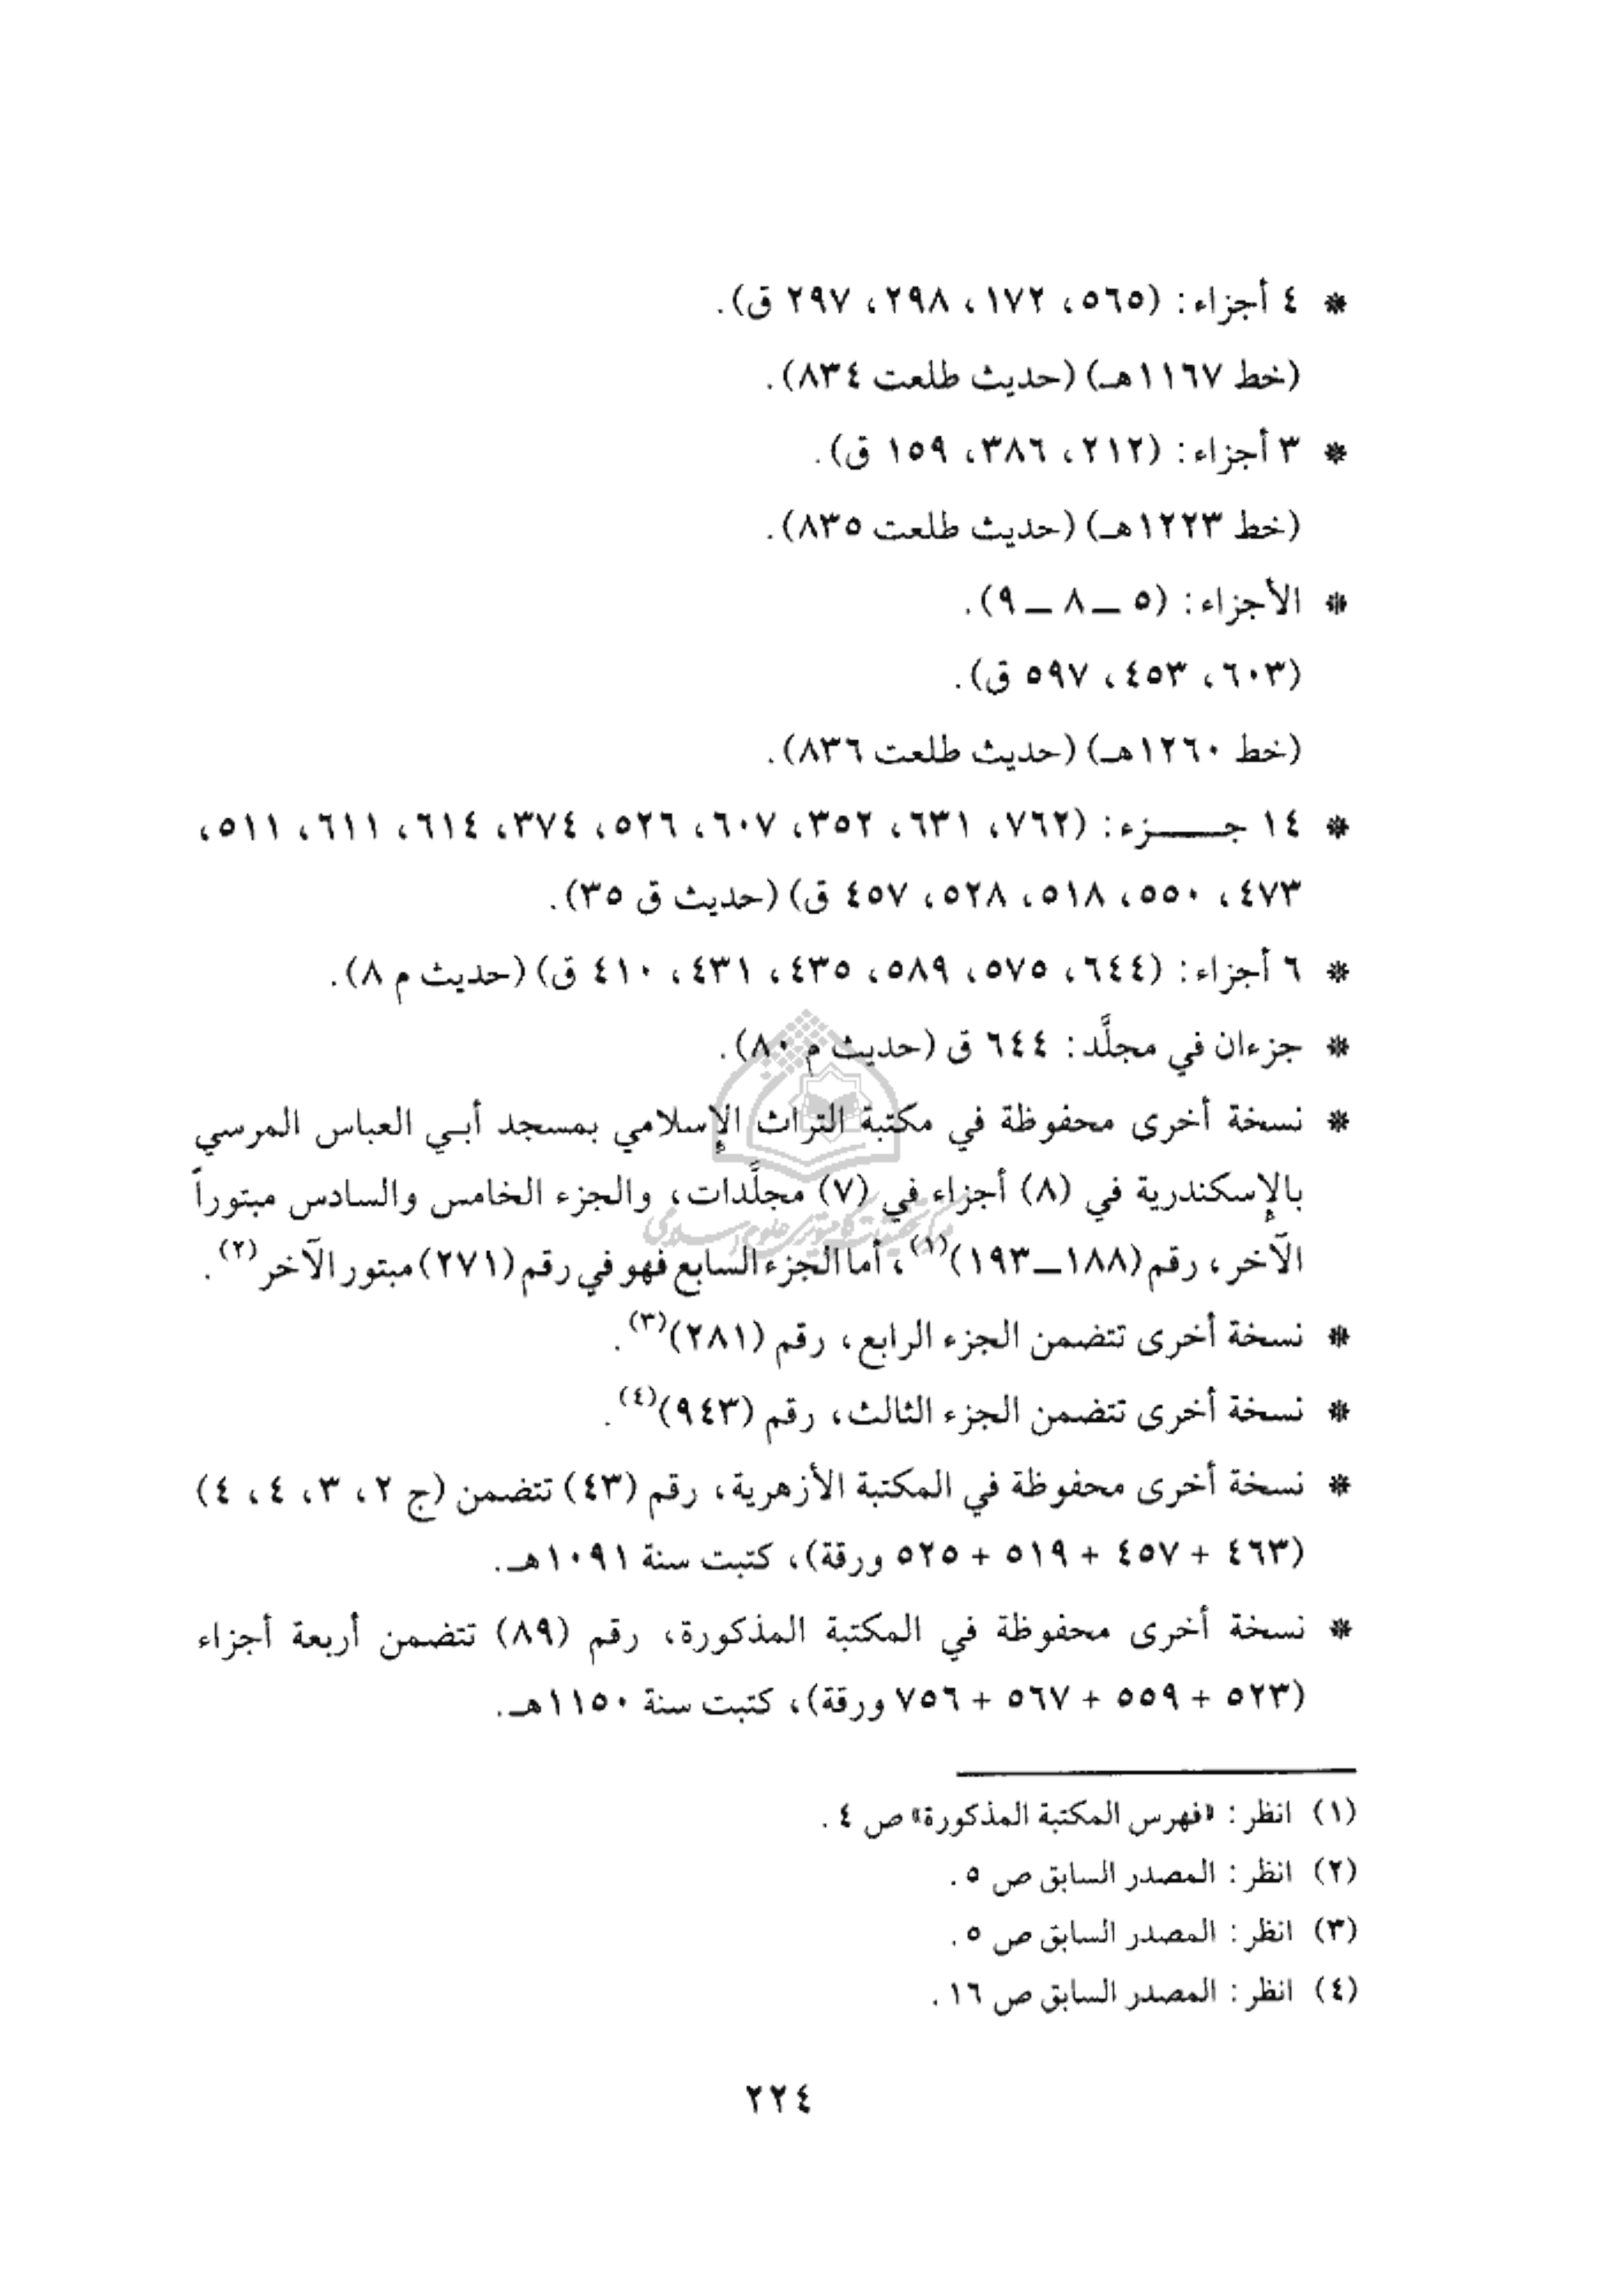 * ٤ أجزاء: (٥٦٥، ١٧٢، ٢٩٨، ٢٩٧ ق).
(خط ١١٦٧هـ) (حديث طلعت ٨٣٤).
* ٣ أجزاء: (٢١٢، ٣٨٦، ١٥٩ ق).
(خط ١٢٢٣هـ) (حديث طلعت ٨٣٥).
* الأجزاء: (٥ ــ ٨ ــ ٩).
(٦٠٣، ٤٥٣، ٥٩٧ ق).
(خط ١٢٦٠هـ) (حديث طلعت ٨٣٦).
* ١٤ جـــــزء: (٧٦٢، ٦٣١، ٣٥٢، ٦٠٧، ٥٢٦، ٣٧٤، ٦١٤، ٦١١، ٥١١،
٤٧٣، ٥٥٠، ٥١٨، ٥٢٨، ٤٥٧ ق) (حديث ق ٣٥).
* ٦ أجزاء: (٦٤٤، ٥٧٥، ٥٨٩، ٤٣٥، ٤٣١، ٤١٠ ق) (حديث م ٨).
* جزءان في مجلَّد: ٦٤٤ ق (حديث م ٨٠).
* نسخة أخرى محفوظة في مكتبة التراث الإسلامي بمسجد أبـي العباس المرسي
بالإسكندرية في (٨) أجزاء في (٧) مجلَّدات، والجزء الخامس والسادس مبتوراً
الآخر، رقم (١٨٨ــ١٩٣)(١)، أما الجزء السابع فهو في رقم (٢٧١) مبتور الآخر(٢).
* نسخة أخرى تتضمن الجزء الرابع، رقم (٢٨١)(٣).
* نسخة أخرى تتضمن الجزء الثالث، رقم (٩٤٣)(٤).
* نسخة أخرى محفوظة في المكتبة الأزهرية، رقم (٤٣) تتضمن (ج ٢، ٣، ٤، ٤)
(٤٦٣ + ٤٥٧ + ٥١٩ + ٥٢٥ ورقة)، كتبت سنة ١٠٩١هـ.
* نسخة أخرى محفوظة في المكتبة المذكورة، رقم (٨٩) تتضمن أربعة أجزاء
(٥٢٣ + ٥٥٩ + ٥٦٧ + ٧٥٦ ورقة)، كتبت سنة ١١٥٠هـ.
(١) انظر: «فهرس المكتبة المذكورة» ص ٤.
(٢) انظر: المصدر السابق ص ٥.
(٣) انظر: المصدر السابق ص ٥.
(٤) انظر: المصدر السابق ص ١٦.
٢٢٤